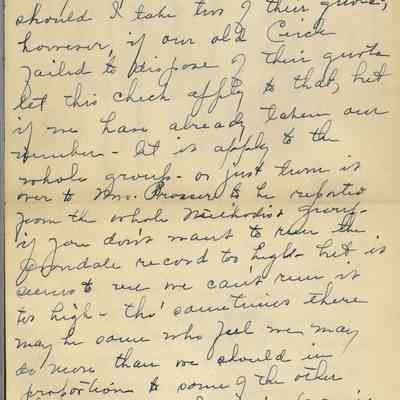 should I take two of their quotas,
however, if our old Circle
failed to dispose of their quota
let this check apply to that, but
if we have already taken our
number - let it apply to the
whole group - or just turn it
over to Mrs. Prosser to be reported
from the whole Methodist group -
if you don't want to run the
Avondale record too high - but it
seems to me we can't run it
too high - tho' sometimes there
may be some who feel we may
do more than we should in
proportion to some of the other